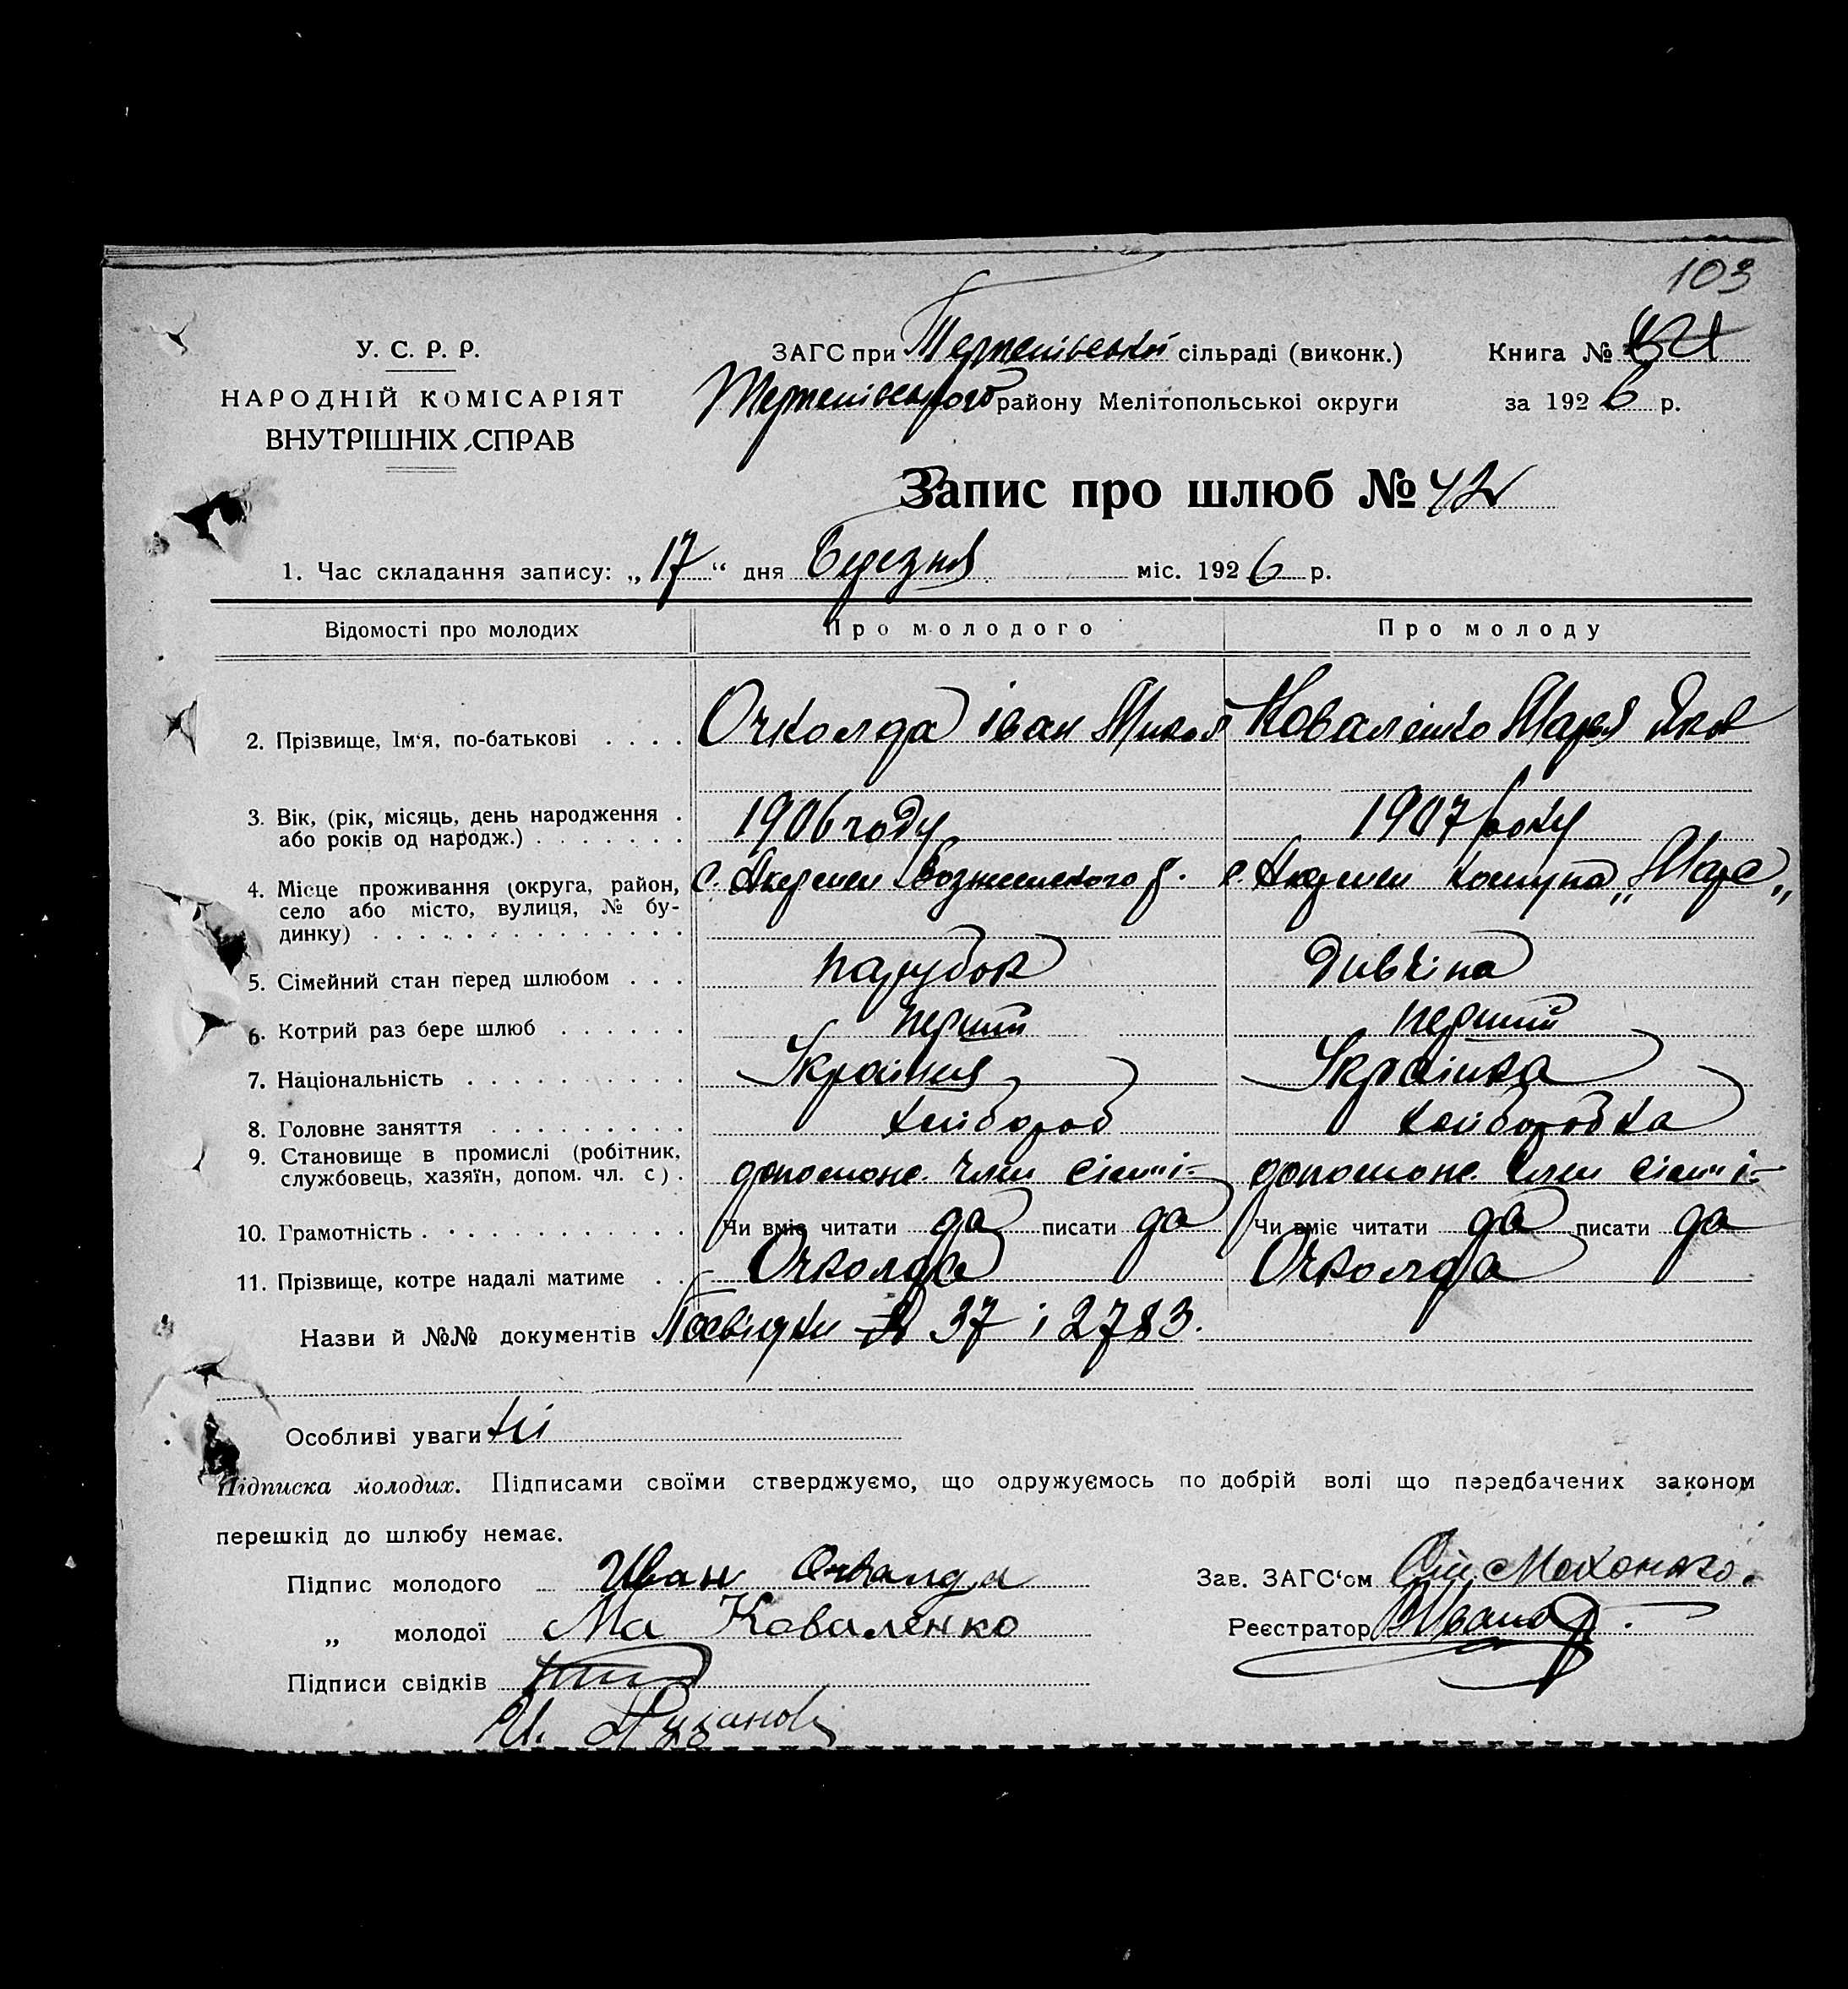 103
У. С. Р. Р.
НАРОДНІЙ КОМІСАРІЯТ
ВНУТРІШНІХ СПРАВ
ЗАГС при Терпеніївської сільраді (виконк.)
Терпеніївського району Мелітопольської округи
Книга №
за 1926 р.
Запис про шлюб № 42
1. Час складання запису: „17“ дня Березня міс. 1926 р.
Відомості про молодих Про молодого Про молоду
2. Прізвище, Ім'я, по-батькові . . . . Очколда Іван Микол Коваленко Марія Яков
3. Вік, (рік, місяць, день народження . або років од народж.) . . . . . . . 1906 году 1907 року
4. Місце проживання (округа, район, село або місто, вулиця, № будинку) . . . . с. Акермен Вознесенского р. с. Акермен Комуна „Марс„
5. Сімейний стан перед шлюбом . . . парубок Дивчіна
6. Котрий раз бере шлюб . . . . . . перший перший
7. Національність . . . . . . . . . . Українця Українка
8. Головне заняття . . . . . . . . . хлібороб хліборобка
9. Становище в промислі (робітник, службовець, хазяїн, допом. чл. с) . допомож. член сім'ї допомож. член сім'ї
10. Грамотність . . . . . . . . . . . Чи вміє читати да писати да Чи вміє читати да писати да
11. Прізвище, котре надалі матиме . . Очколда Очколда
Назви й №№ документів Посвідки № 37 і 2783.
Особливі уваги Ні
Підписка молодих. Підписами своїми стверджуємо, що одружуємось по добрій волі що передбачених законом
перешкід до шлюбу немає.
Підпис молодого Иван Очколда
Зав. ЗАГС'ом
„ молодої Ма Коваленко
Реєстратор
Підписи свідків